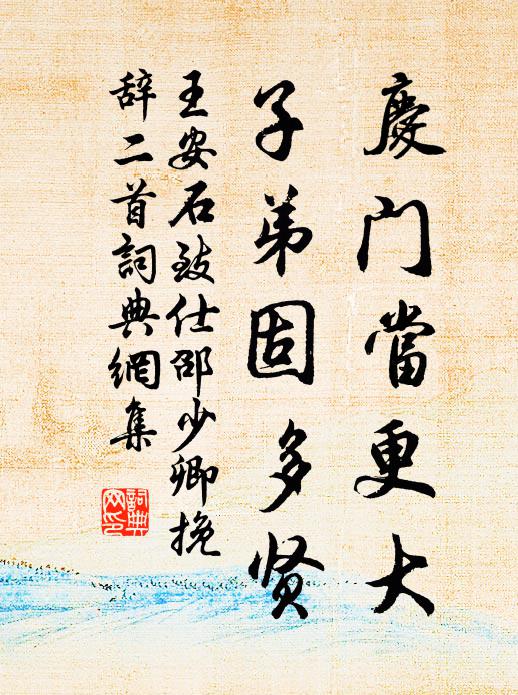 慶門當更大
子弟固多贤
王安石致仕邵少卿挽
辞二首詞典網集
詞典
网印